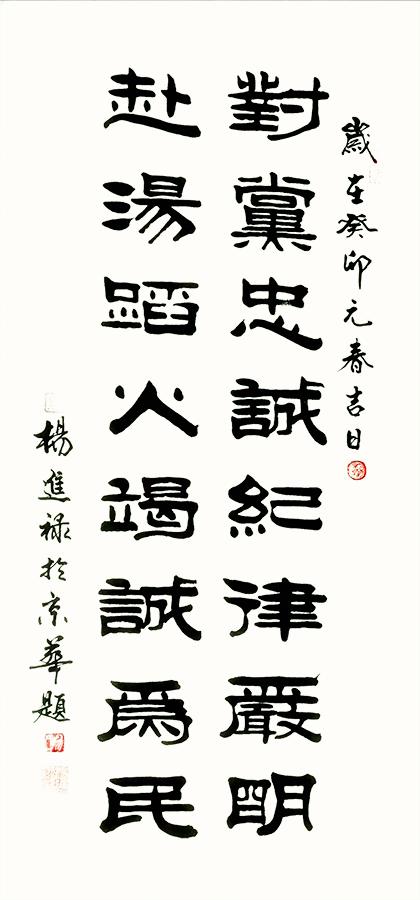 歲在癸卯元春吉日
對黨忠誠紀律嚴明
赴湯蹈火竭誠爲民
楊進祿於京華題